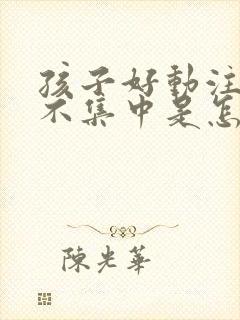 孩子好動注
不集中是怎
陳光華